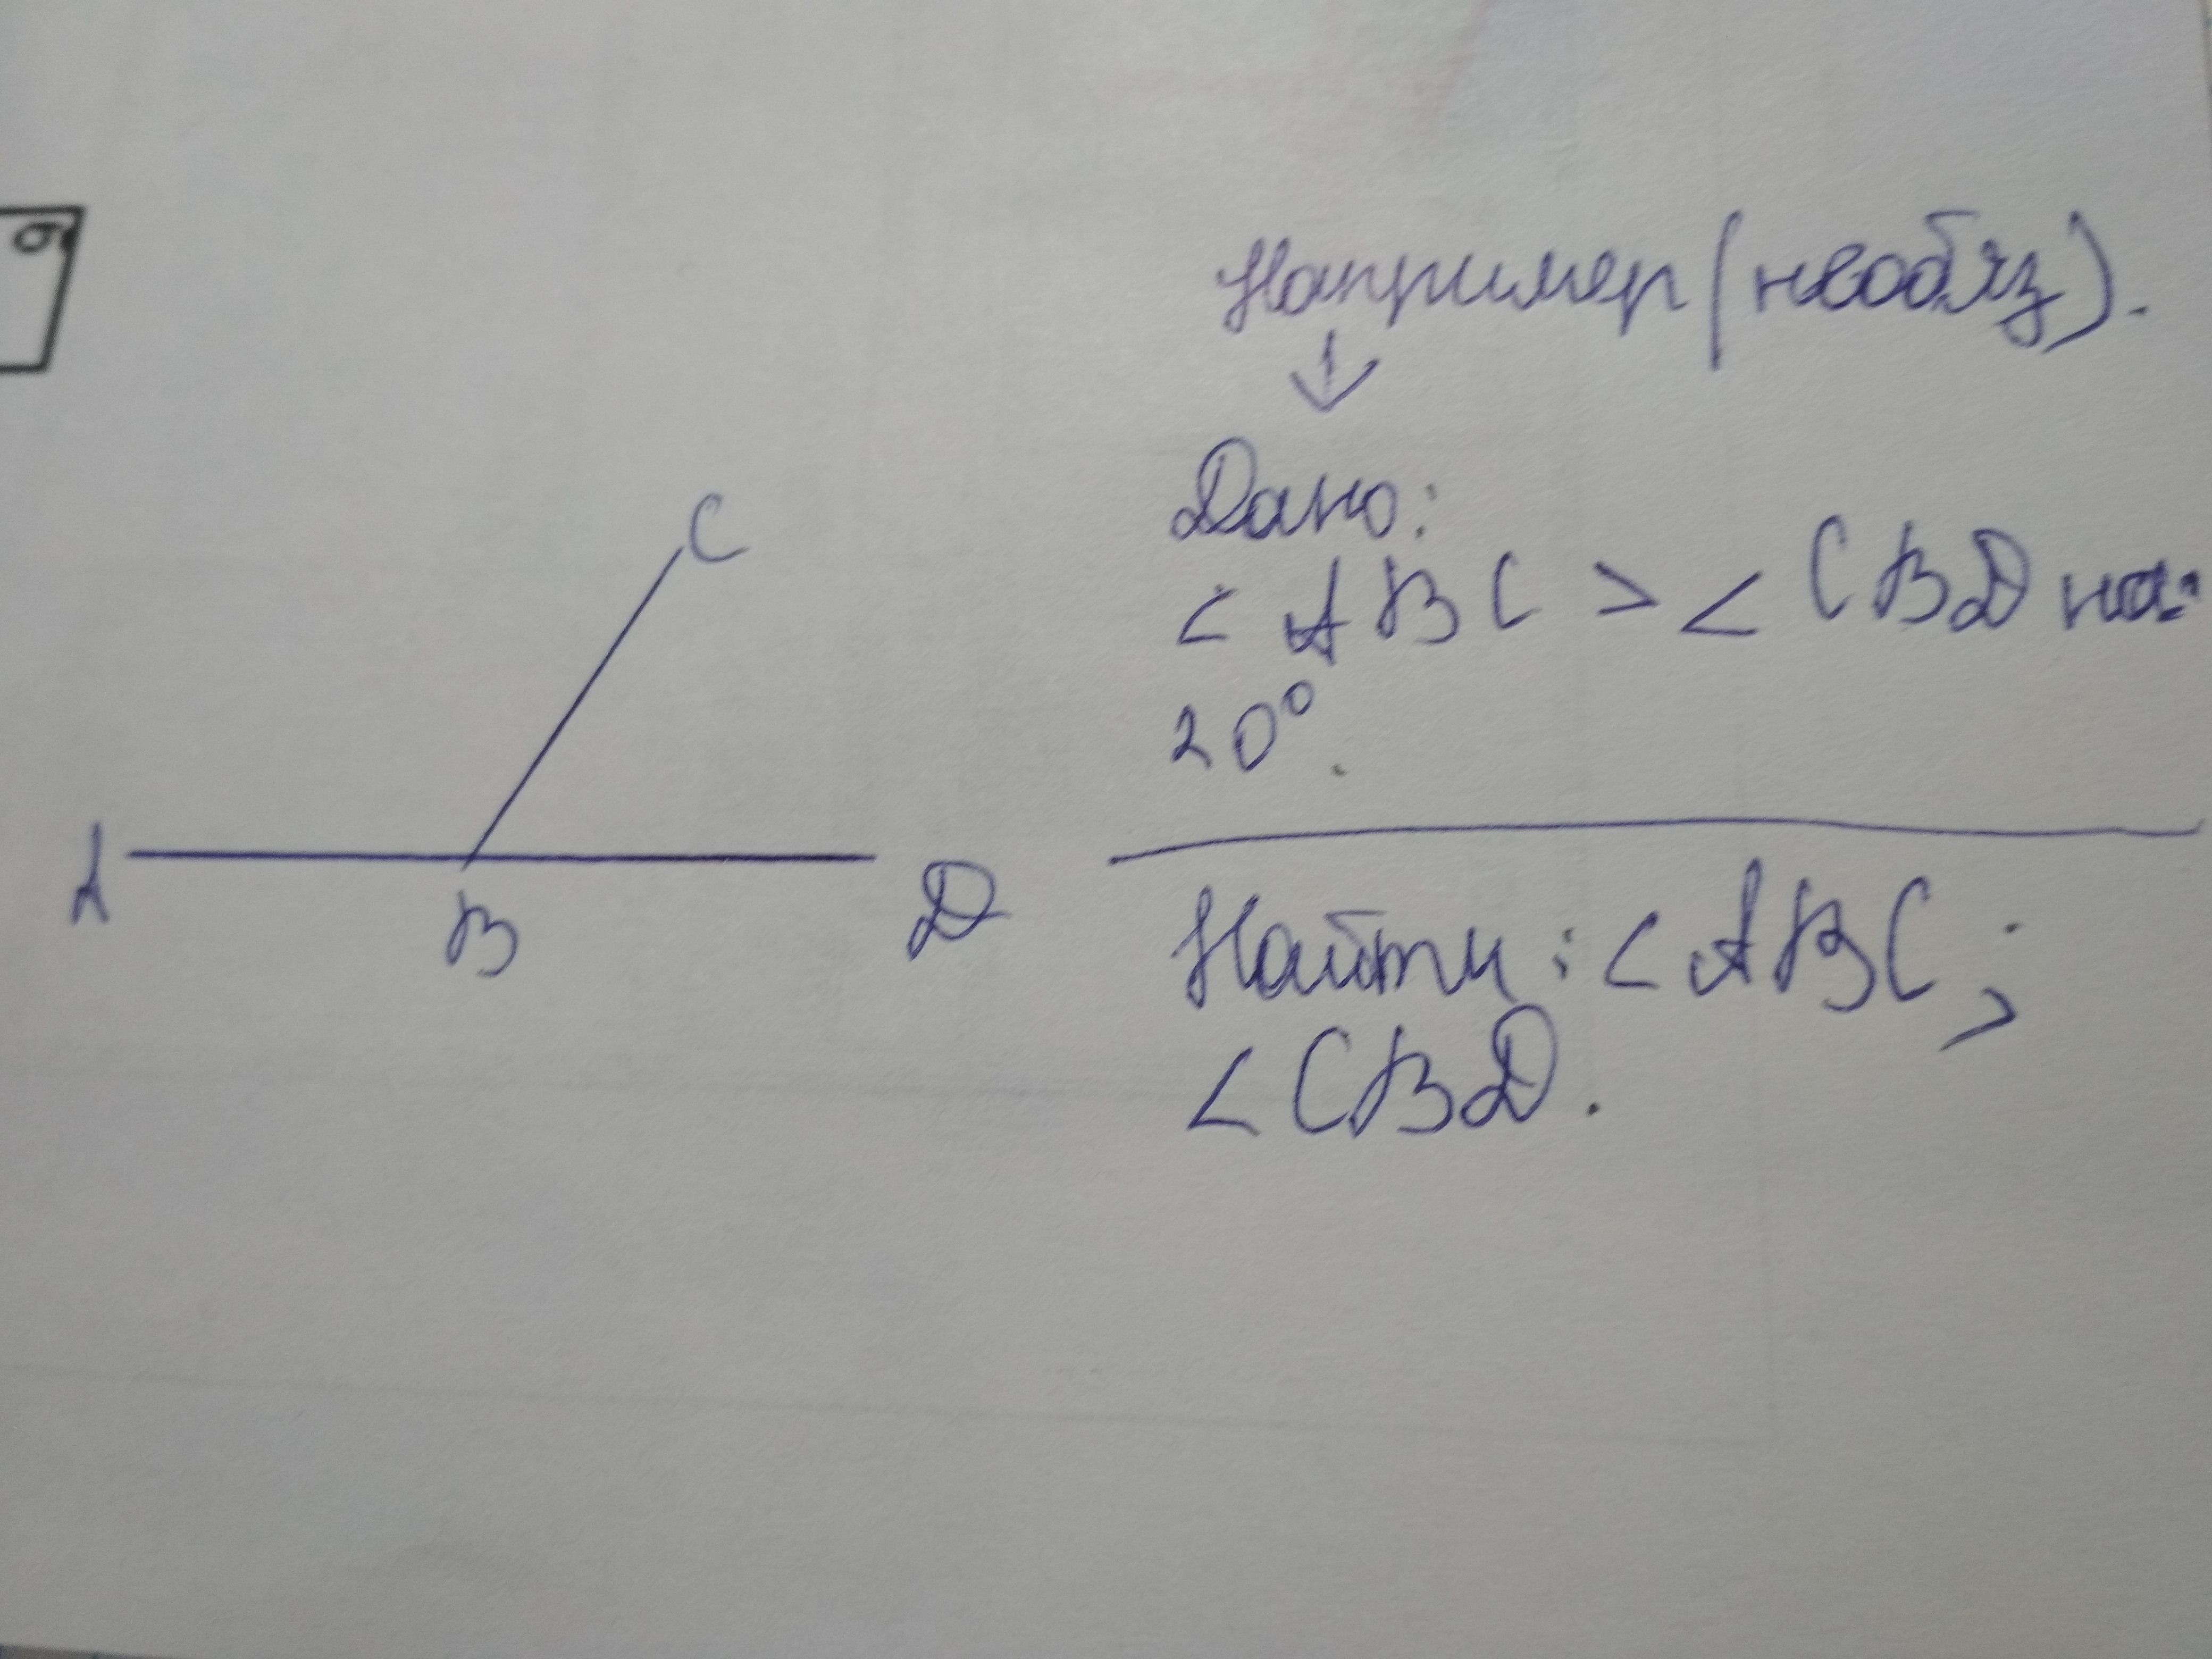 Например (необяз).
↓
Дано:
< ABC > < CBD на
20°.
Найти: < ABC;
< CBD.
C
A
B
D